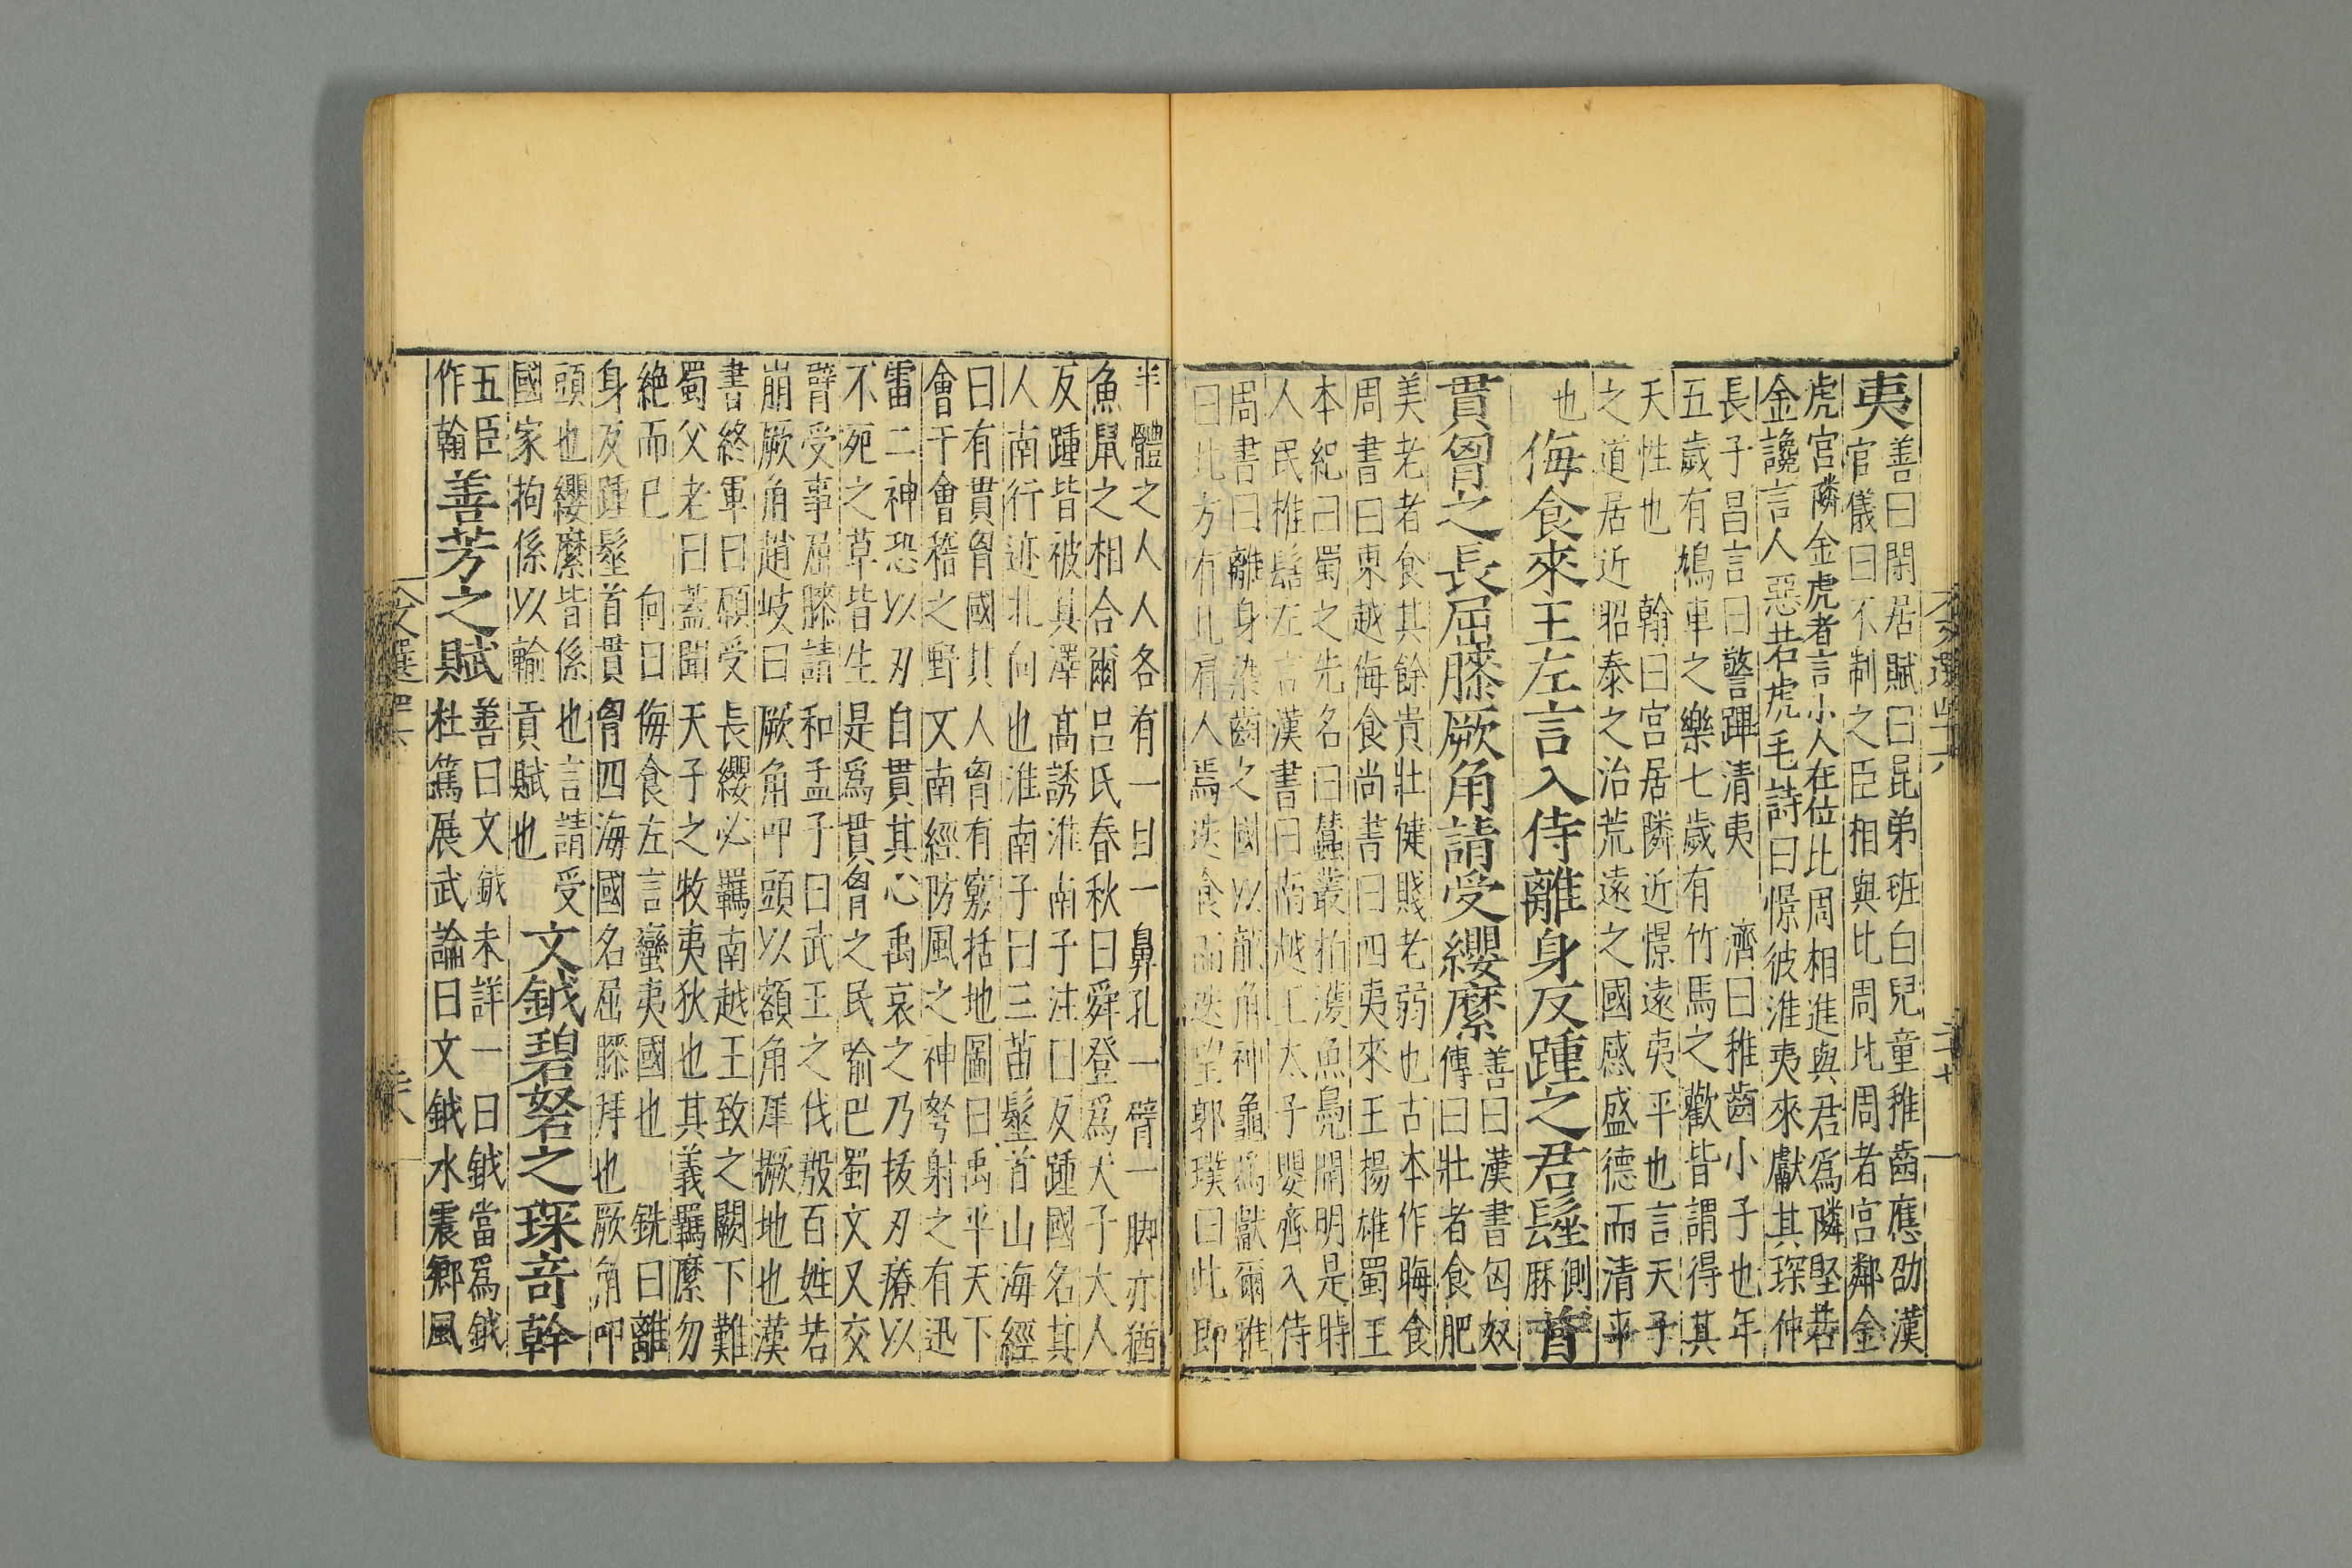 夷
善曰閑居賦曰昆弟班白兒童稚齒應劭漢
官儀曰不制之臣相與比周比周者宮鄰金
虎宮隣金虎者言小人在位比周相進與君爲隣堅若
金讒言人惡若虎毛詩曰憬彼淮夷來獻其琛仲
長子昌言曰警蹕清夷 濟曰稚齒小子也年
五歲有鳩車之樂七歲有竹馬之歡皆謂得其
天性也 翰曰宮居隣近憬遠夷平也言天子
之道居近昭泰之治荒遠之國感盛德而清平
也
侮食來王左言入侍離身反踵之君髽側麻首
貫匈之長屈膝厥角請受纓縻
善曰漢書匈奴
傳曰壯者食肥
美老者食其餘貴壯健賤老弱也古本作晦食
周書曰東越侮食尚書曰四夷來王揚雄蜀王
本紀曰蜀之先名曰蠶叢柏濩魚鳧開明是時
人民椎髻左言漢書曰南越王太子嬰齊入侍
周書曰離身染齒之國以龍角神龜爲獻爾雅
曰北方有比肩人焉迭食而迭望郭璞曰此即
半體之人人各有一目一鼻孔一臂一脚亦猶
魚鼠之相合爾呂氏春秋曰舜登爲天子大人
反踵皆被其澤高誘淮南子注曰反踵國名其
人南行迹北向也淮南子曰三苗髽首山海經
曰有貫匈國其人匈有竅括地圖曰禹平天下
會于會稽之野又南經防風之神弩射之有迅
雷二神恐以刃自貫其心禹哀之乃拔刃療以
不死之草皆生是爲貫匈之民喻巴蜀文又交
臂受事屈膝請和孟子曰武王之伐殷百姓若
崩厥角趙岐曰厥角叩頭以額角厗撅地也漢
書終軍曰願受長纓必羈南越王致之闕下難
蜀父老曰蓋聞天子之牧夷狄也其義羈縻勿
絶而已 向曰侮食左言蠻夷國也 銑曰離
身反踵髽首貫胷四海國名屈膝拜也厥角叩
頭也纓縻皆係也言請受
國家拘係以輸貢賦也
文鉞碧砮之琛奇幹
五臣
作翰
善芳之賦
善曰文鉞未詳一曰鉞當爲鉞
杜篤展武論曰文鉞水震鄉風
文選